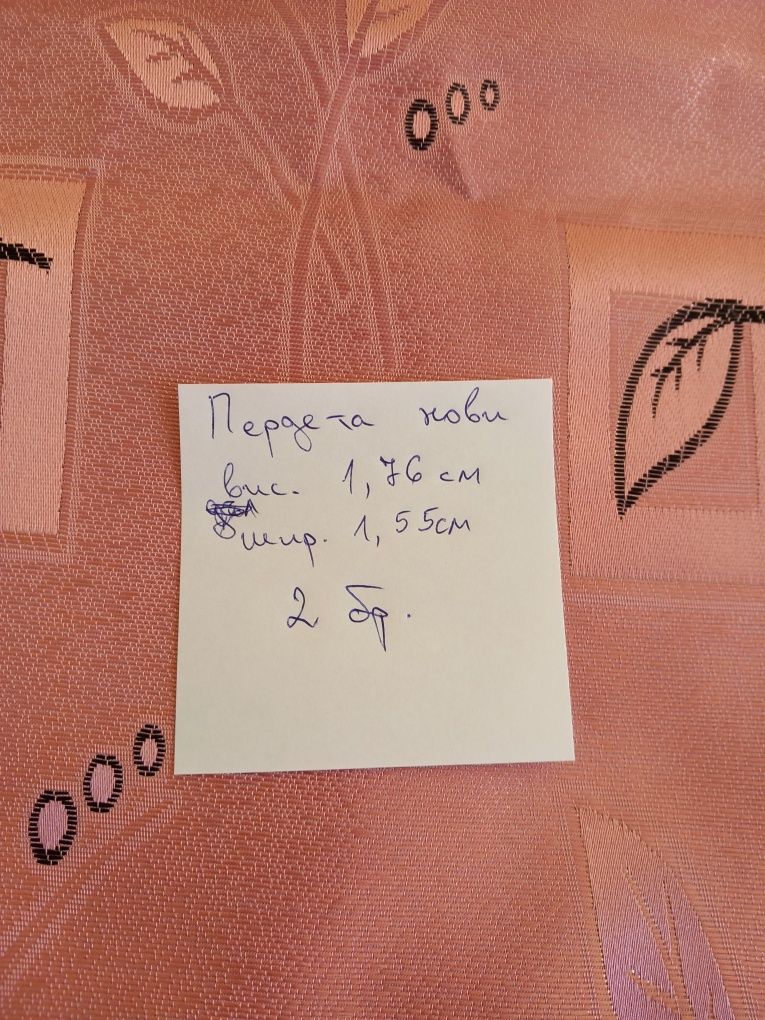 Пердета нови
вис. 1,76 см
шир. 1,55см
2 бр.